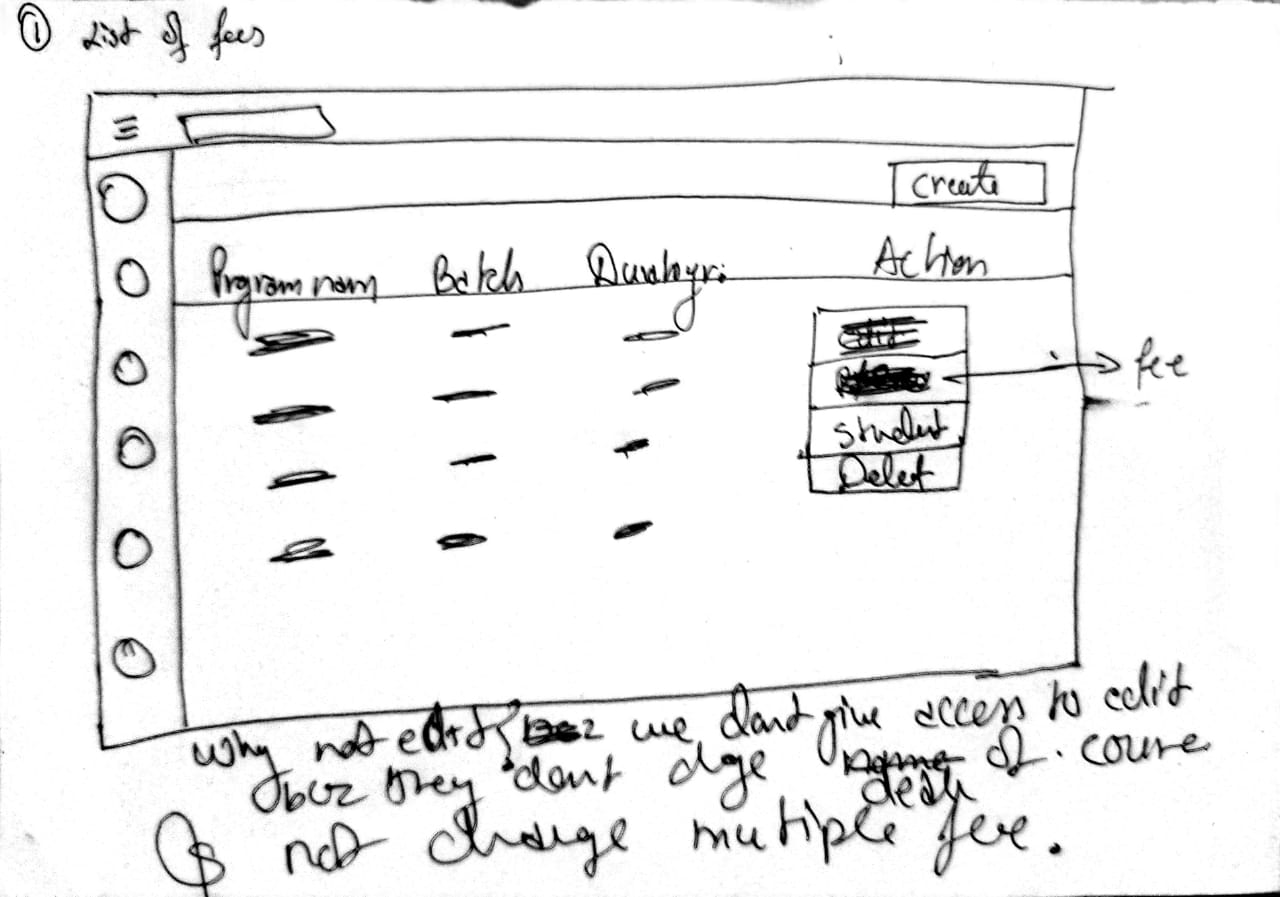 ① List of fees
create
Program nam Batch Action
fee
student
Delet
why not edit { we dont give access to edit
bcz they dont of course
& not change mutiple fee.